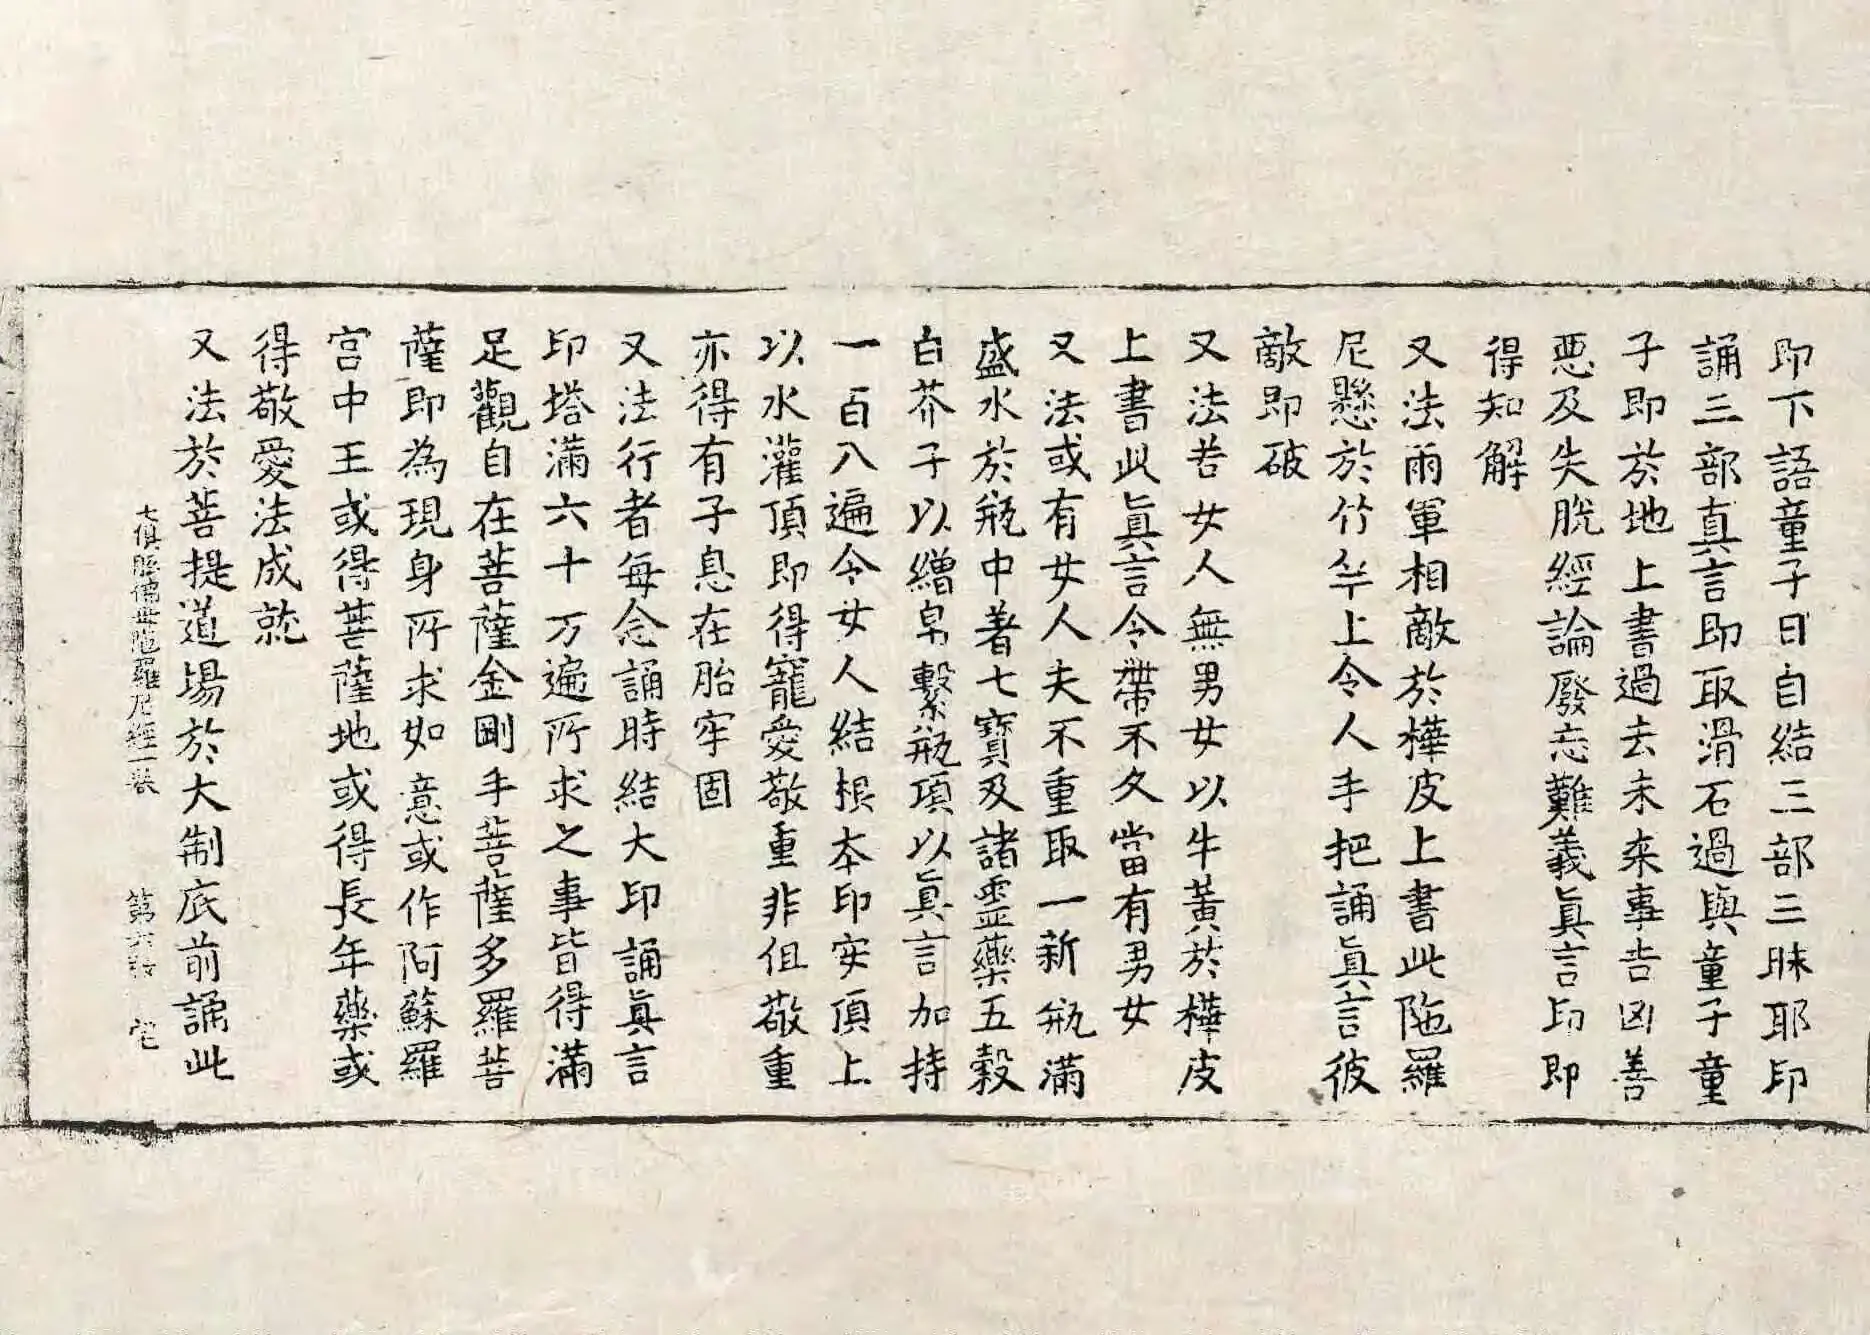 即下語童子曰自結三部三昧耶印
誦三部真言即取滑石過與童子童
子即於地上書過去未来事吉凶善
惡及失脫經論廢忘難義真言印即
得知解
又法兩軍相敵於樺皮上書此陁羅
尼懸於竹竿上令人手把誦真言彼
敵即破
又法若女人無男女以牛黃於樺皮
上書此真言令帶不久當有男女
又法或有女人夫不重取一新瓶滿
盛水於瓶中著七寶及諸靈藥五穀
白芥子以繒帛繫瓶項以真言加持
一百八遍令女人結根本印安頂上
以水灌頂即得寵愛敬重非但敬重
亦得有子息在胎牢固
又法行者每念誦時結大印誦真言
印塔滿六十万遍所求之事皆得滿
足觀自在菩薩金剛手菩薩多羅菩
薩即為現身所求如意或作阿蘇羅
宮中王或得菩薩地或得長年藥或
得敬愛法成就
又法於菩提道場於大制底前誦此
七俱胝德母陁羅尼經一卷 第六張 宅